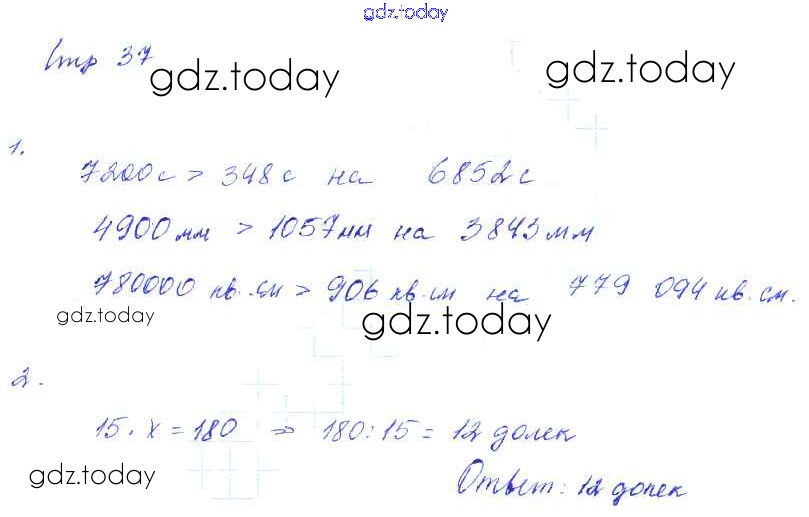 gdz.today
Стр 37
gdz.today
gdz.today
1.
7200с > 348с на 6852с
4900мм > 1057мм на 3843мм
780000 кв.см > 906 кв.см на 779 094 кв.см.
gdz.today
gdz.today
2.
15 · x = 180 ⇒ 180:15 = 12 долек
gdz.today
gdz.today
Ответ: 12 долек